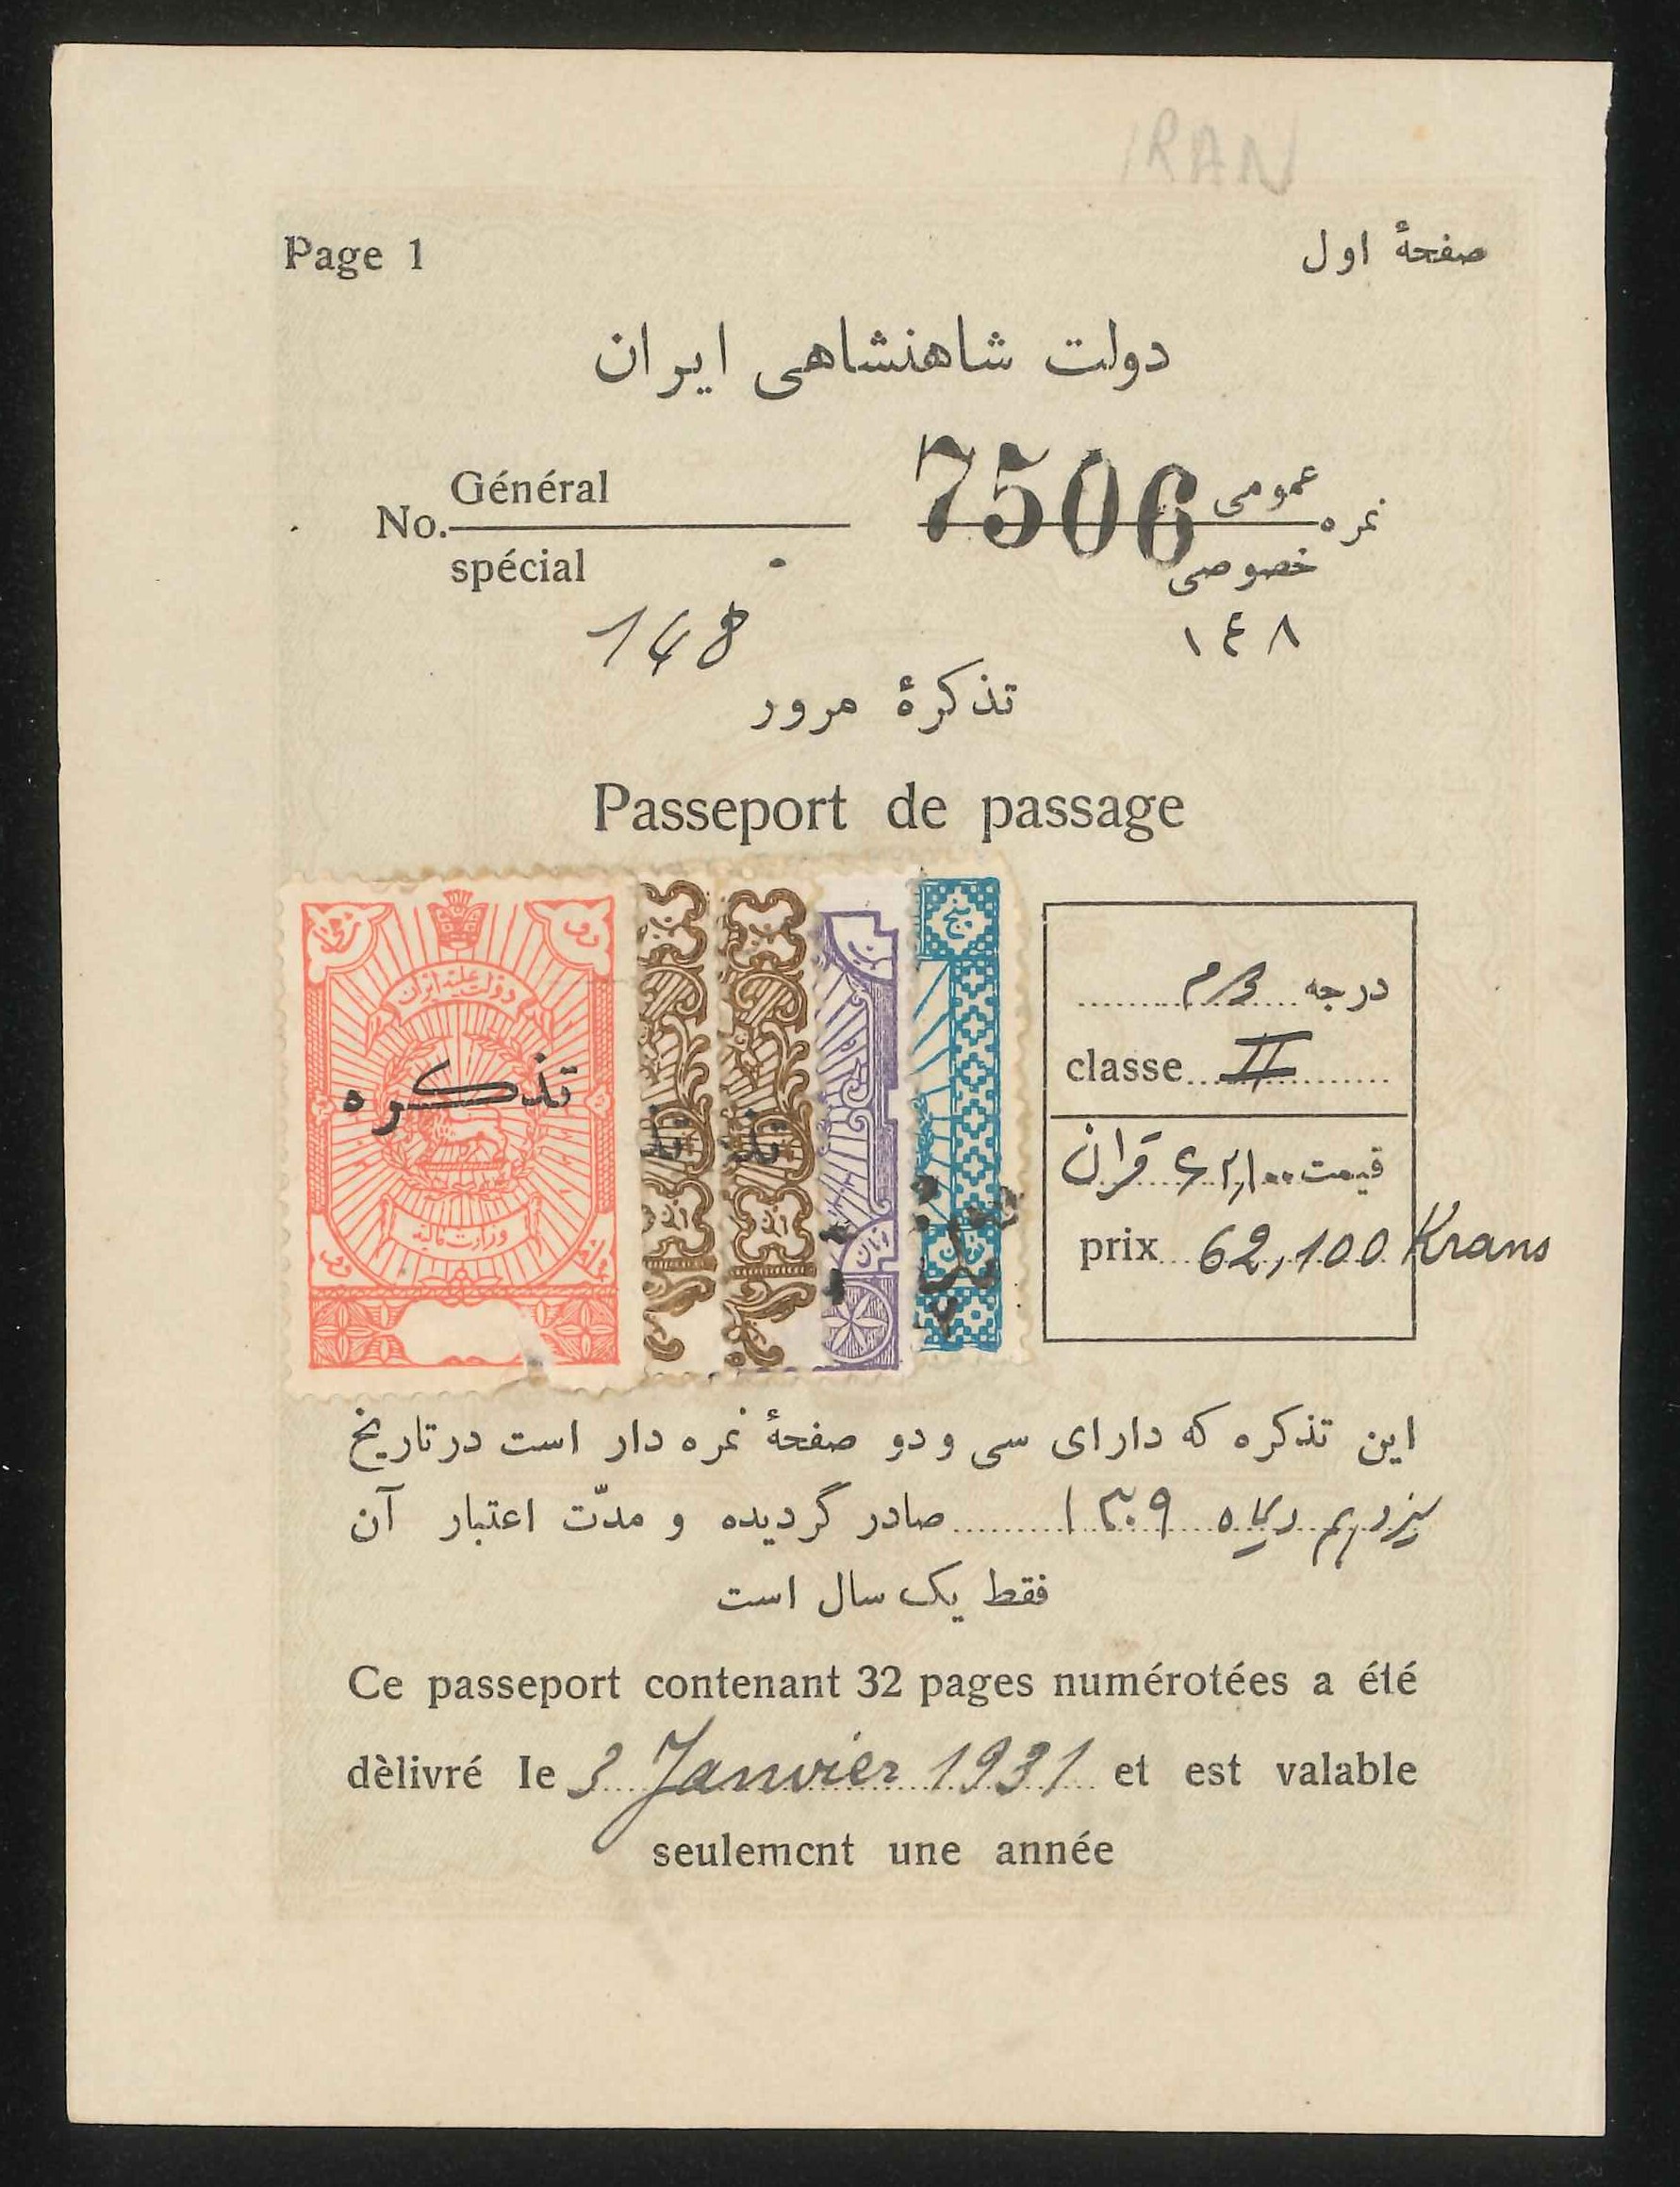 IRAN
Page 1 صفحهٔ اول
دولت شاهنشاهی ایران
No. Général 7506 عمومی نمره
spécial خصوصی
148 ١٤٨
تذکرهٔ مرور
Passeport de passage
دولت علیه ایران
تذکره
وزارت مالیه
تذ
تذ
قران
قران
پنج
درجه دوم
classe II
قیمت ۶۲٫۱۰۰ قران
prix 62,100 Krans
این تذکره که دارای سی و دو صفحهٔ نمره دار است در تاریخ
سیزدهم دیماه ۱۳۰۹ صادر گردیده و مدّت اعتبار آن
فقط یک سال است
Ce passeport contenant 32 pages numérotées a été
dèlivré le 3 Janvier 1931 et est valable
seulemcnt une année